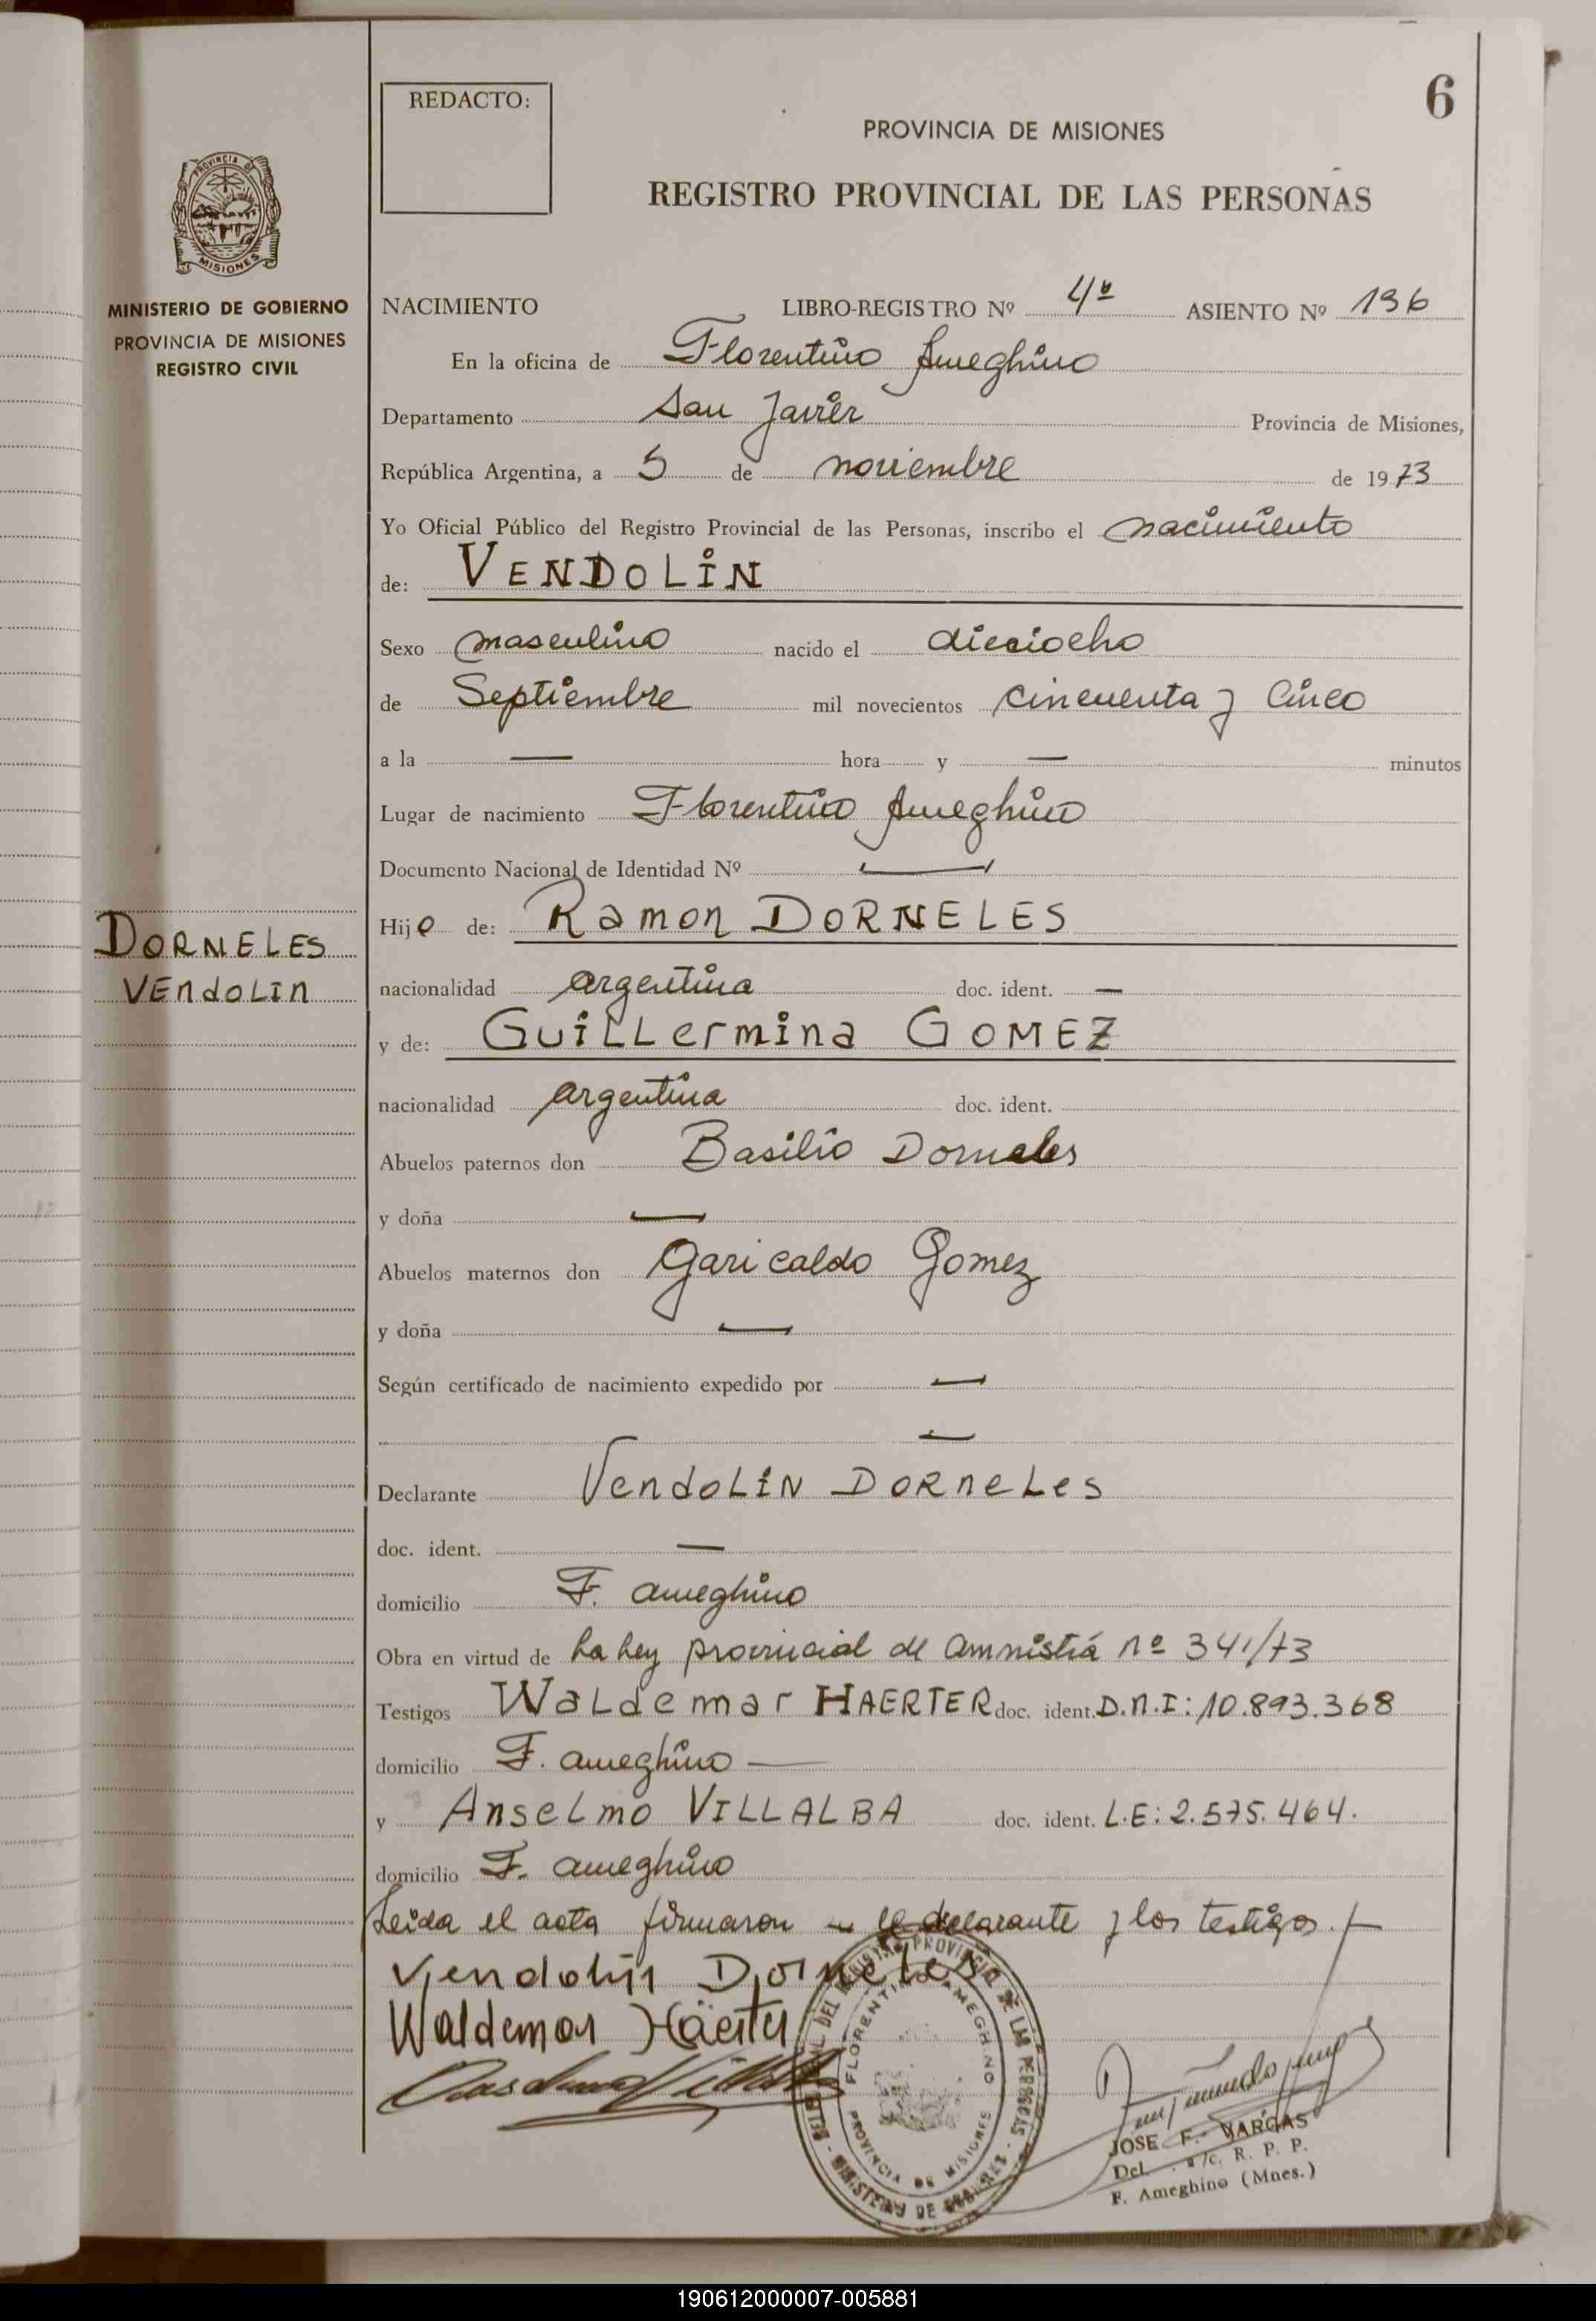 6
REDACTO:
PROVINCIA DE MISIONES
REGISTRO PROVINCIAL DE LAS PERSONAS
PROVINCIA DE
MISIONES
MINISTERIO DE GOBIERNO
PROVINCIA DE MISIONES
REGISTRO CIVIL
NACIMIENTO LIBRO-REGISTRO Nº 4º ASIENTO Nº 136
En la oficina de Florentino Ameghino
Departamento San Javier Provincia de Misiones,
República Argentina, a 5 de noviembre de 1973
Yo Oficial Público del Registro Provincial de las Personas, inscribo el nacimiento
de: VENDOLIN
Sexo masculino nacido el dieciocho
de Septiembre mil novecientos cincuenta y cinco
a la — hora y — minutos
Lugar de nacimiento Florentino Ameghino
Documento Nacional de Identidad Nº —
DORNELES
VEndoLIn
Hijo de: Ramon DORNELES
nacionalidad argentina doc. ident. —
y de: GuiLLermina GOMEZ
nacionalidad argentina doc. ident.
Abuelos paternos don Basilio Dorneles
y doña —
Abuelos maternos don Garicaldo Gomez
y doña —
Según certificado de nacimiento expedido por —
—
Declarante VendoLiN DORneLes
doc. ident. —
domicilio F. ameghino
Obra en virtud de La Ley provincial de Amnistiá nº 341/73
Testigos WaLdemar HAERTER doc. ident. D.N.I: 10.893.368
domicilio F. ameghino —
y AnseLmo VILLALBA doc. ident. L.E: 2.575.464.
domicilio F. ameghino
Leida el acta firmaron el declarante y los testigos.
Vendolin Dorneles
Waldemar Häerter
DEL REGISTRO PROVINCIAL DE LAS PERSONAS - MINISTERIO DE GOBIERNO
FLORENTINO AMEGHINO
PROVINCIA DE MISIONES
JOSE F. VARGAS
Del. a/c. R. P. P.
F. Ameghino (Mnes.)
190612000007-005881